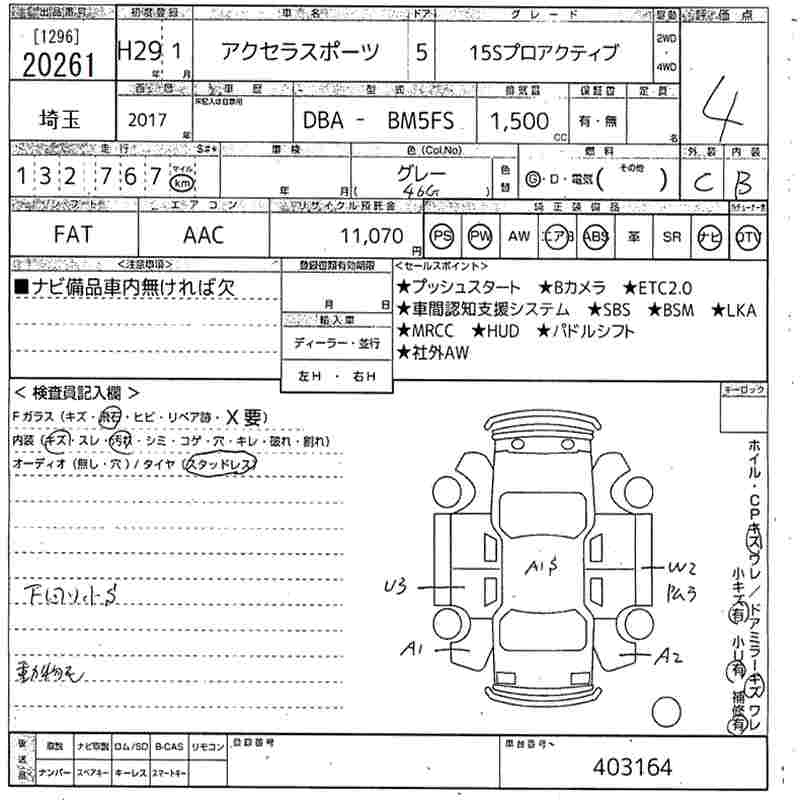 出品番号 初度登録 車名 ドア グレード 駆動 評価点
[1296] 20261 H29年 1月 アクセラスポーツ 5 15Sプロアクティブ 2WD・4WD 4
西暦 車歴 型式 排気量 保証書 定員
埼玉 2017年 未記入は自家用 DBA - BM5FS 1,500CC 有・無 名
走行 S#* 車検 色(Col.No) 燃料 外装 内装
132767 マイル km 年 月 グレー (46G) 色替 G・D・電気( その他 ) C B
シフト エアコン リサイクル預託金 純正装備品
FAT AAC 11,070円 PS PW AW エアB ABS 革 SR ナビ TV
<注意事項> 登録書類有効期限 <セールスポイント>
■ナビ備品車内無ければ欠
月 日
輸入車
ディーラー・並行
左H・右H
★プッシュスタート ★Bカメラ ★ETC2.0
★車間認知支援システム ★SBS ★BSM ★LKA
★MRCC ★HUD ★パドルシフト
★社外AW
<検査員記入欄> キーロック
Fガラス(キズ・飛石・ヒビ・リペア跡・X要)
内装(キズ・スレ・汚れ・シミ・コゲ・穴・キレ・破れ・割れ)
オーディオ(無し・穴)/タイヤ(スタッドレス)
A1S
U3
W2
A1
A2
動物毛
ホイル・CPキズワレ/ドアミラーキズワレ
小キズ有 小U有 補修有
後送品 取説 ナビ取説 ロム/SD B-CAS リモコン 登録番号 車台番号
ナンバー スペアキー キーレス スマートキー
403164